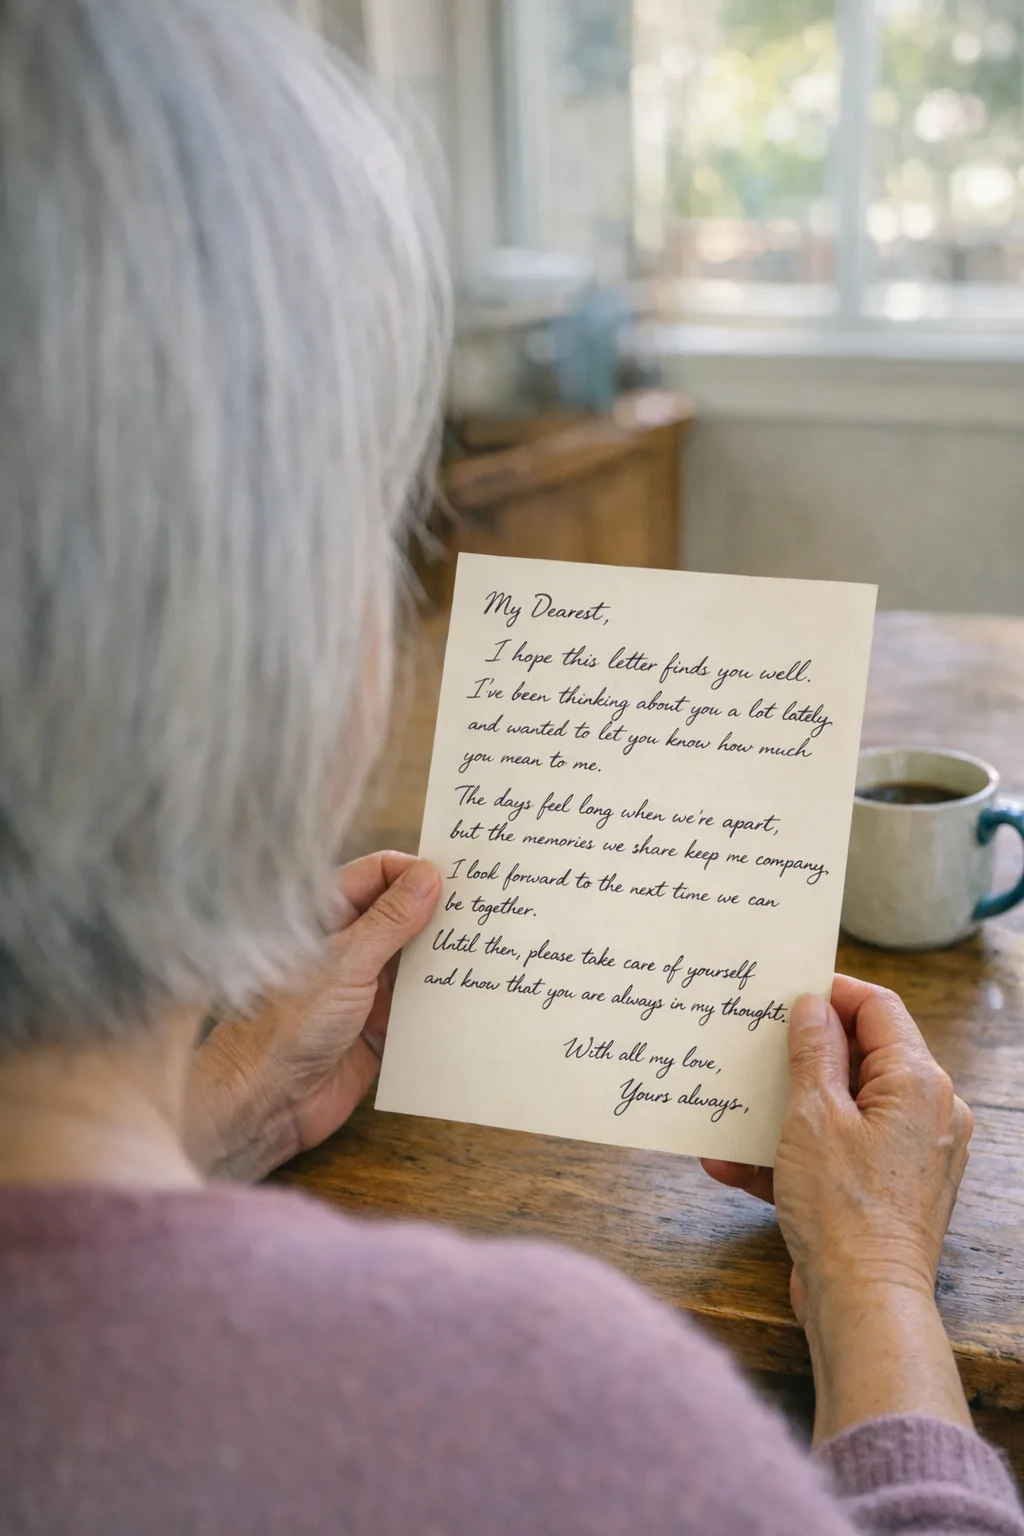 My Dearest,
I hope this letter finds you well.
I've been thinking about you a lot lately
and wanted to let you know how much
you mean to me.
The days feel long when we're apart,
but the memories we share keep me company.
I look forward to the next time we can
be together.
Until then, please take care of yourself
and know that you are always in my thought.
With all my love,
Yours always,